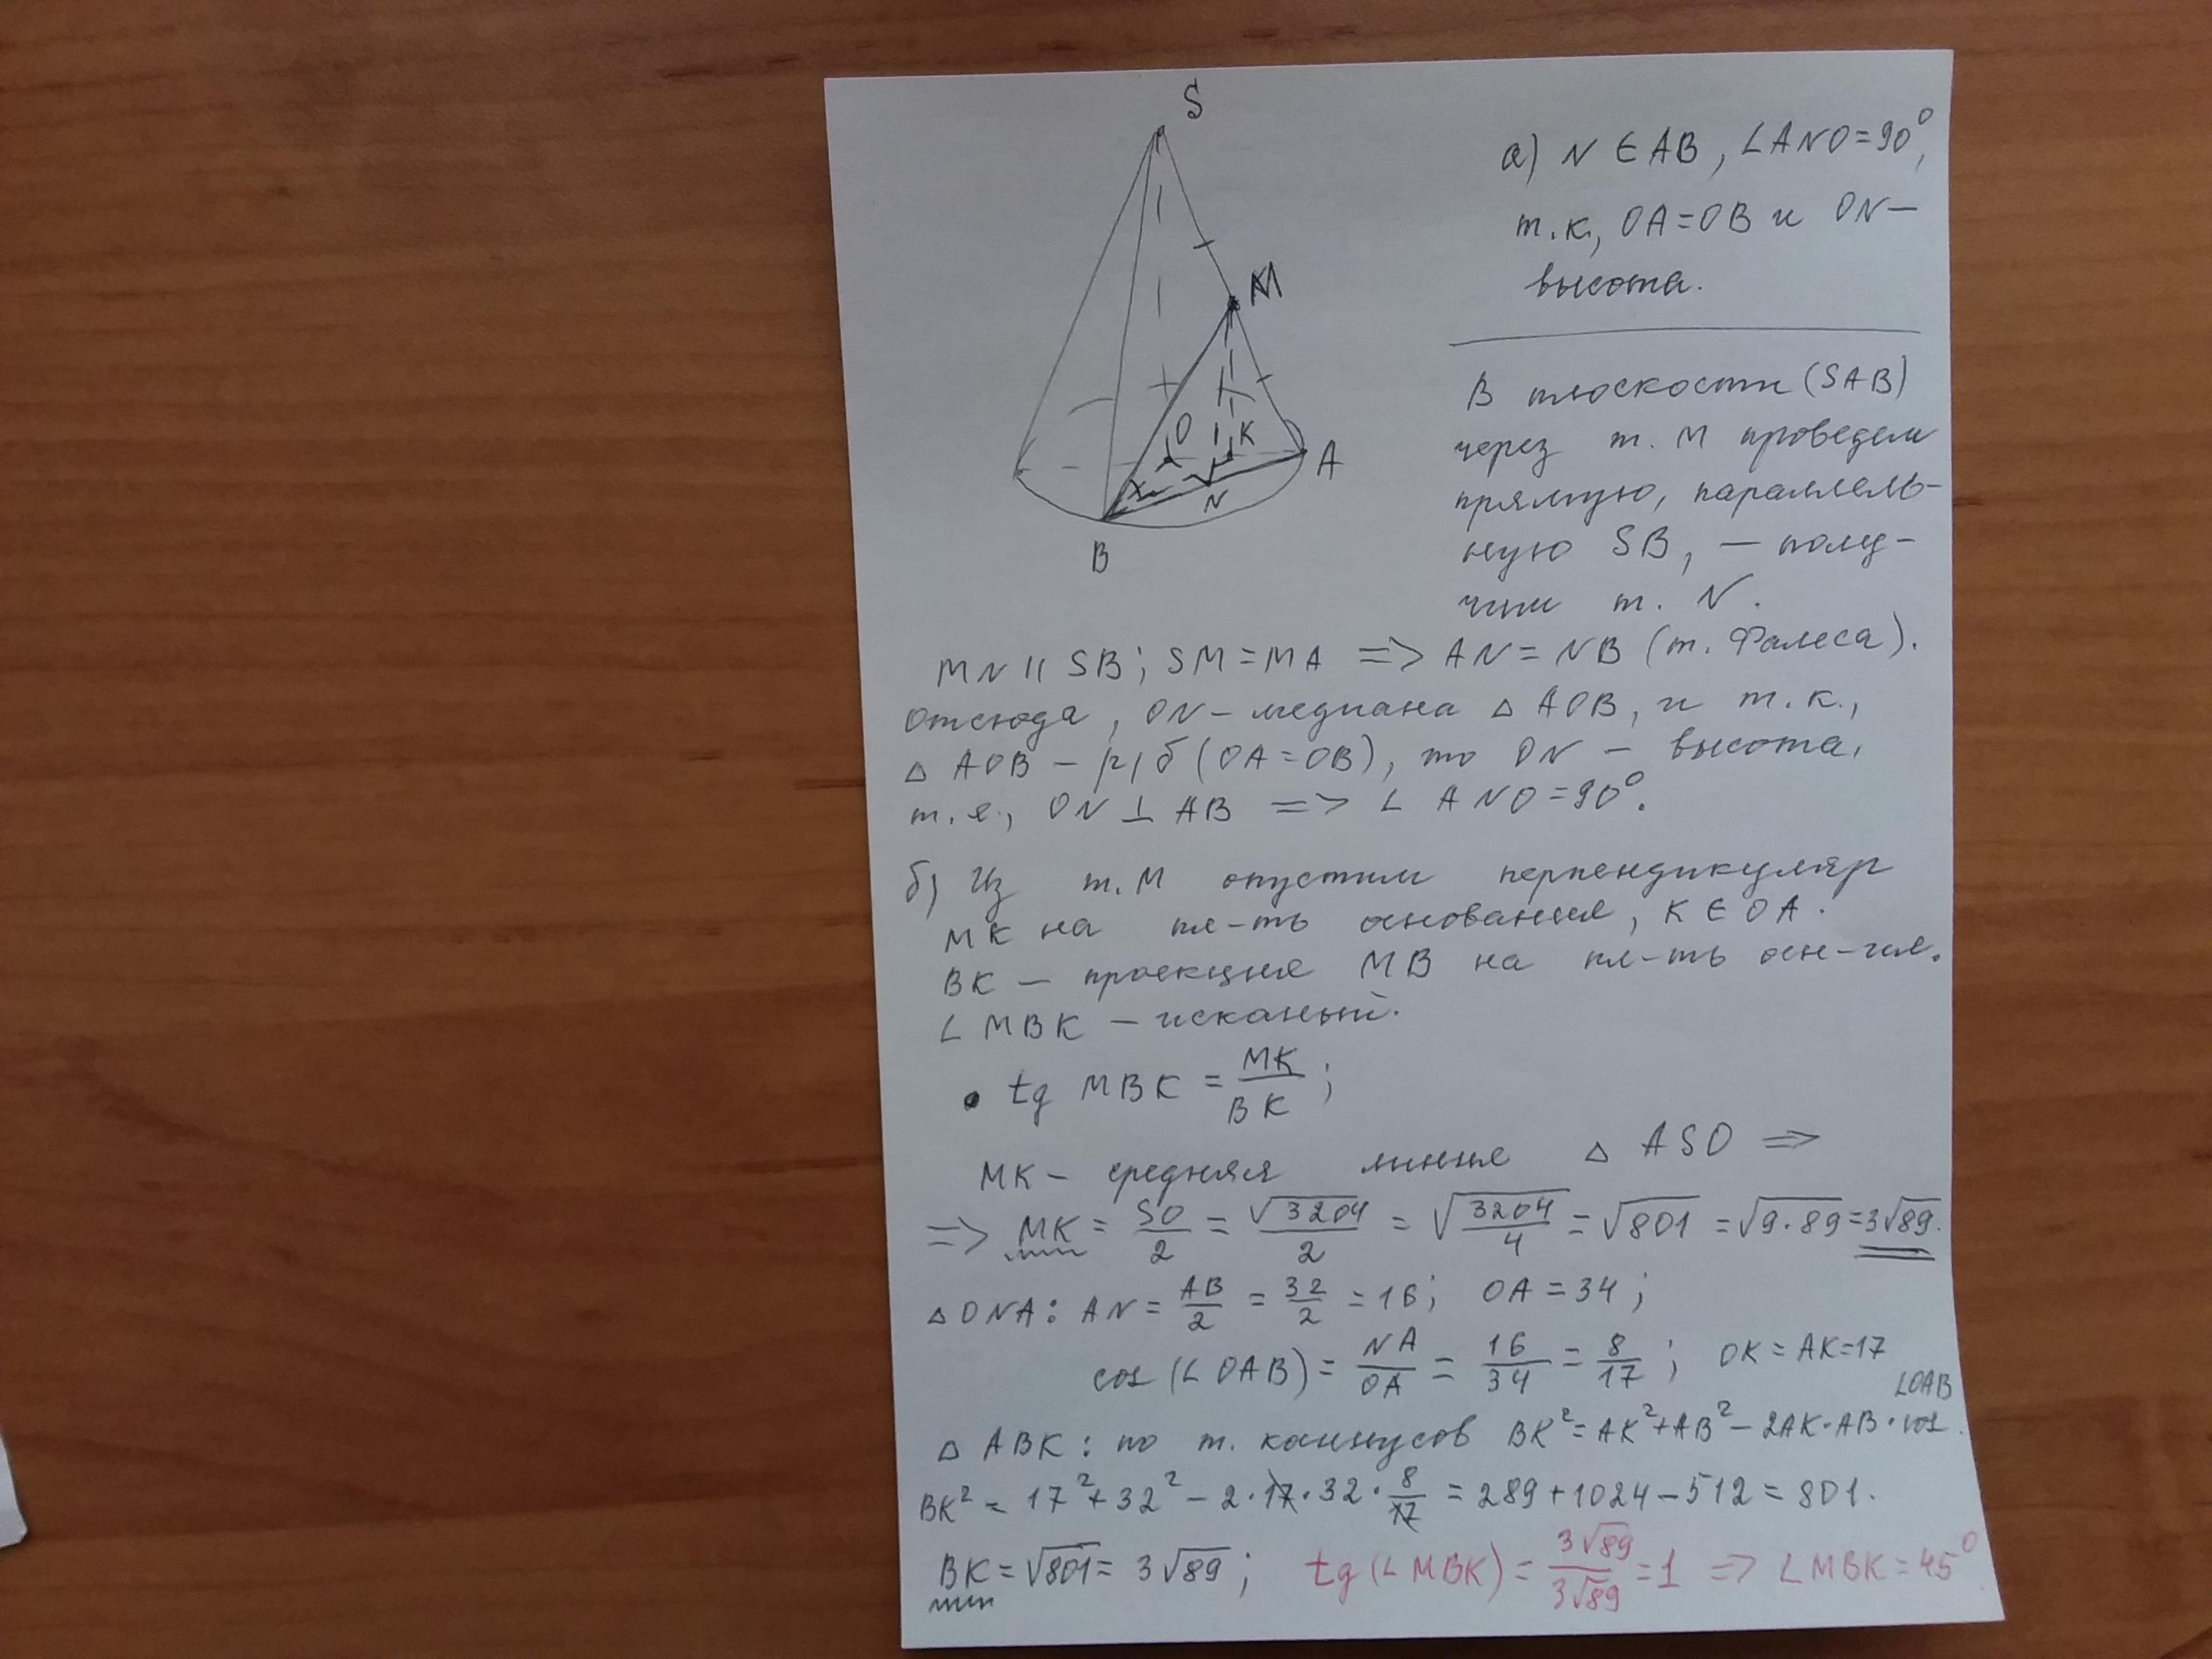 S
M
O
K
A
N
B
а) N ∈ AB, ∠ANO=90°,
т.к., OA=OB и ON—
высота.
В плоскости (SAB)
через т. M проведем
прямую, параллель-
ную SB, — полу-
чим т. N.
MN || SB; SM=MA => AN=NB (т. Фалеса).
Отсюда, ON-медиана △ AOB, и т.к.,
△ AOB — р/б (OA=OB), то ON — высота,
т.е., ON ⊥ AB => ∠ ANO=90°.
б) Из т. M опустим перпендикуляр
MK на пл-ть основания, K ∈ OA.
BK — проекция MB на пл-ть осн-ия.
∠ MBK — исканый.
• tg MBK = MK/BK;
MK — средняя линия △ ASO =>
=> MK = SO/2 = √3204/2 = √(3204/4) = √801 = √9·89 = 3√89.
△ ONA: AN = AB/2 = 32/2 = 16; OA = 34;
cos (∠OAB) = NA/OA = 16/34 = 8/17; OK = AK=17
△ ABK: по т. косинусов BK² = AK²+AB² - 2AK·AB·cos ∠OAB.
BK² = 17² + 32² - 2·17·32·8/17 = 289+1024-512 = 801.
BK = √801 = 3√89; tg (∠ MBK) = 3√89/3√89 = 1 => ∠ MBK = 45°.